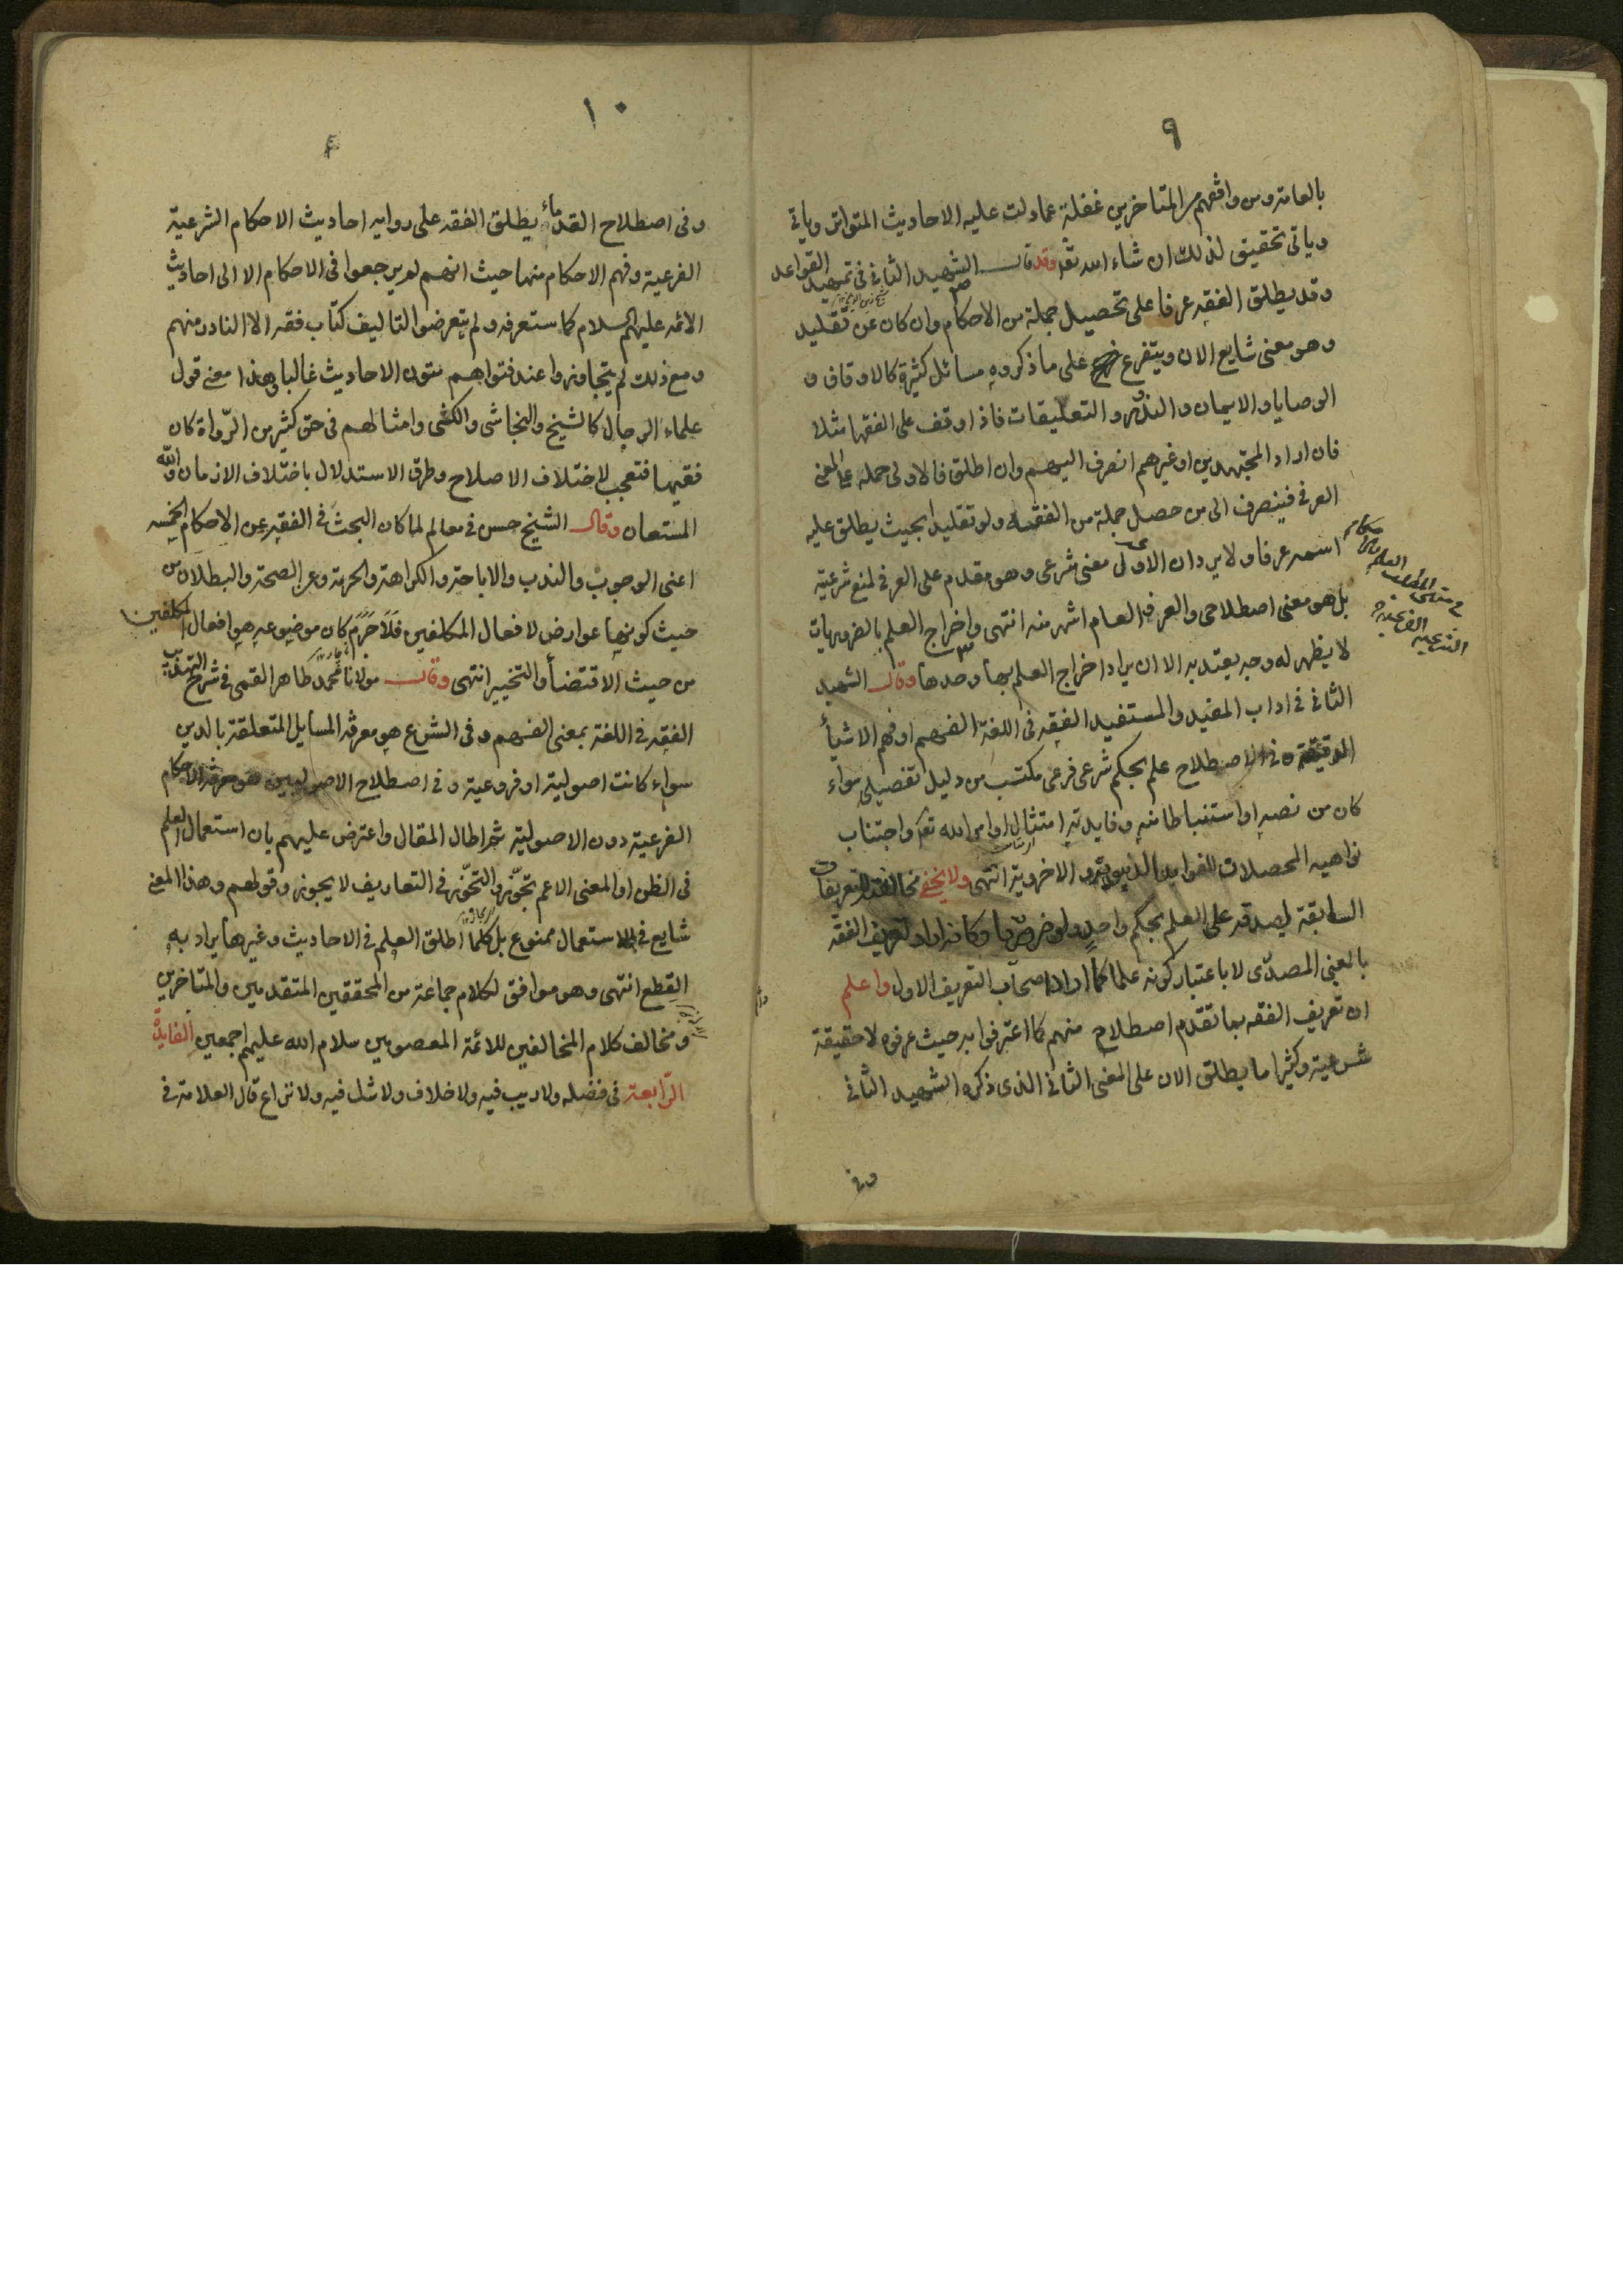 ٩
بالعامة ومن وافقهم من المتاخرين غفلة عما دلت عليه الاحاديث المتواتر وياتي
وياتي تحقيق لذلك ان شاء الله تعالى وقد قال الشهيد الثاني في تمهيد القواعد
وقد يطلق الفقه عرفا على تحصيل جملة من الاحكام وان كان عن تقليد
وهو معنى شايع الان ويتفرع على ما ذكروه مسائل كثيرة كالاوقاف و
الوصايا والايمان والنذور والتعليقات فاذا وقف على الفقها مثلا
فان اراد المجتهدين او غيرهم انصرف اليهم وان اطلق فالاولى حمله على المعنى
العرفي فينصرف الى من حصل جملة من الفقه ولو تقليدا بحيث يطلق عليه
اسمه عرفا ولا يرد ان الاول معنى شرعى وهو مقدم على العرفي لمنع شرعيته
بل هو معنى اصطلاحى والعرف العام اشهر منه انتهى واخراج العلم بالضروريات
لا يظهر له وجه يعتد به الا ان يراد اخراج العلم بها وحدها وقال الشهيد
الثاني في اداب المفيد والمستفيد الفقه في اللغة الفهم او فهم الاشيأ
الدقيقة وفي الاصطلاح علم بحكم شرعى فرعى مكتسب من دليل تفصيلى سواء
كان من نصه او استنباطا منه وفايدته امتثال اوامر الله تعالى واجتناب
نواهيه المحصلات للفوايد الدنيوية والاخروية انتهى ولا يخفى مخالفته للتعريفات
السابقة لصدقه على العلم بحكم واحد ولو ضروريا وكانه اراد تعريف الفقه
بالمعنى المصدرى لا باعتبار كونه علما كما اراد اصحاب التعريف الاول واعلم
ان تعريف الفقه بما تقدم اصطلاح منهم كما اعترفوا به حيث عرفوه لا حقيقة
شرعية وكثيرا ما يطلق الان على المعنى الثاني الذى ذكره الشهيد الثاني
وفي
١٠
وفى اصطلاح القدمأ يطلق الفقه على رواية احاديث الاحكام الشرعية
الفرعية وفهم الاحكام منها حيث انهم لم يرجعوا فى الاحكام الا الى احاديث
الائمه عليهم السلام كما ستعرفه ولم يتعرضوا لتاليف كتاب فقه الا النادر منهم
ومع ذلك لم يتجاوزوا عند فتواهم متون الاحاديث غالبا وهذا معنى قول
علماء الرجال كالشيخ والنجاشى والكشى وامثالهم فى حق كثير من الرواة كان
فقيها فتعجب لاختلاف الاصلاح وطرق الاستدلال باختلاف الازمان والله
المستعان وقال الشيخ حسن في معالم لما كان البحث في الفقه عن الاحكام الخمسه
اعنى الوجوب والندب والاباحة والكراهة والحرمة وعن الصحة والبطلان من
حيث كونها عوارض لافعال المكلفين فلا جرم كان موضوعه هو افعال المكلفين
من حيث الاقتضأ والتخيير انتهى وقال مولانا محمد طاهر القمى في شرح التهذيب
الفقه في اللغة بمعنى الفهم وفى الشرع هو معرفة المسايل المتعلقة بالدين
سواء كانت اصولية او فروعية وفى اصطلاح الاصوليين هو معرفة الاحكام
الفرعية دون الاصولية ثم اطال المقال واعترض عليهم بان استعمال العلم
فى الظن او المعنى الاعم تجوز والتجوز في التعاريف لا يجوز وقولهم وهذا المعنى
شايع في الاستعمال ممنوع بل كلما اطلق العلم في الاحاديث وغيرها يراد به
القطع انتهى وهو موافق لكلام جماعة من المحققين المتقدمين والمتاخرين
ومخالف كلام المخالفين للائمة المعصومين سلام الله عليهم اجمعين الفايدة
الرابعة في فضله ولا ريب فيه ولا خلاف ولا شك فيه ولا نزاع قال العلامة في